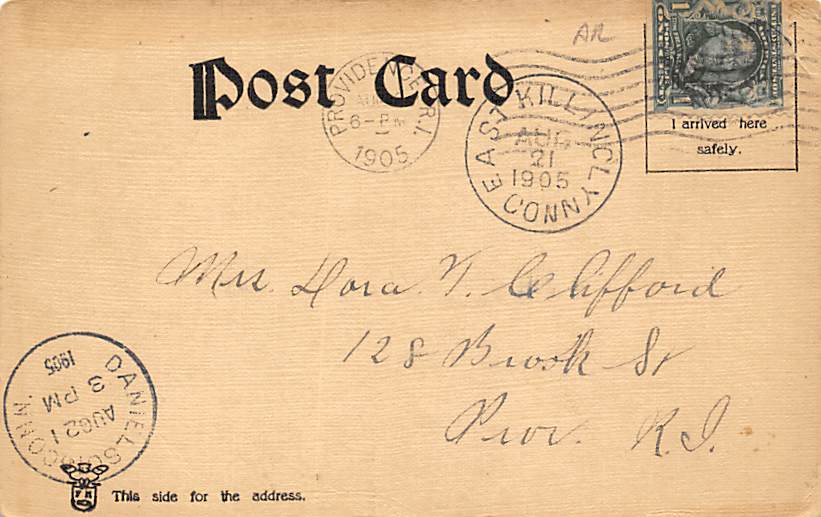 AR
Post Card
PROVIDENCE, R.I.
AUG
6-PM
1905
EAST KILLINGLY
AUG
21
1905
CONN
1 1
I arrived here
safely.
Mrs. Dora T. Clifford
128 Brook St
Prov. R.I.
DANIELSON, CONN.
AUG 21
3 PM
1905
This side for the address.